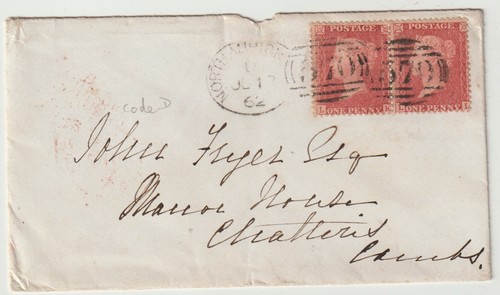 POSTAGE POSTAGE
570 570
ONE PENNY ONE PENNY
NORTHAMPTON
62
code D
John Fryer Esq
Manor House
Chatteris
Cambs.